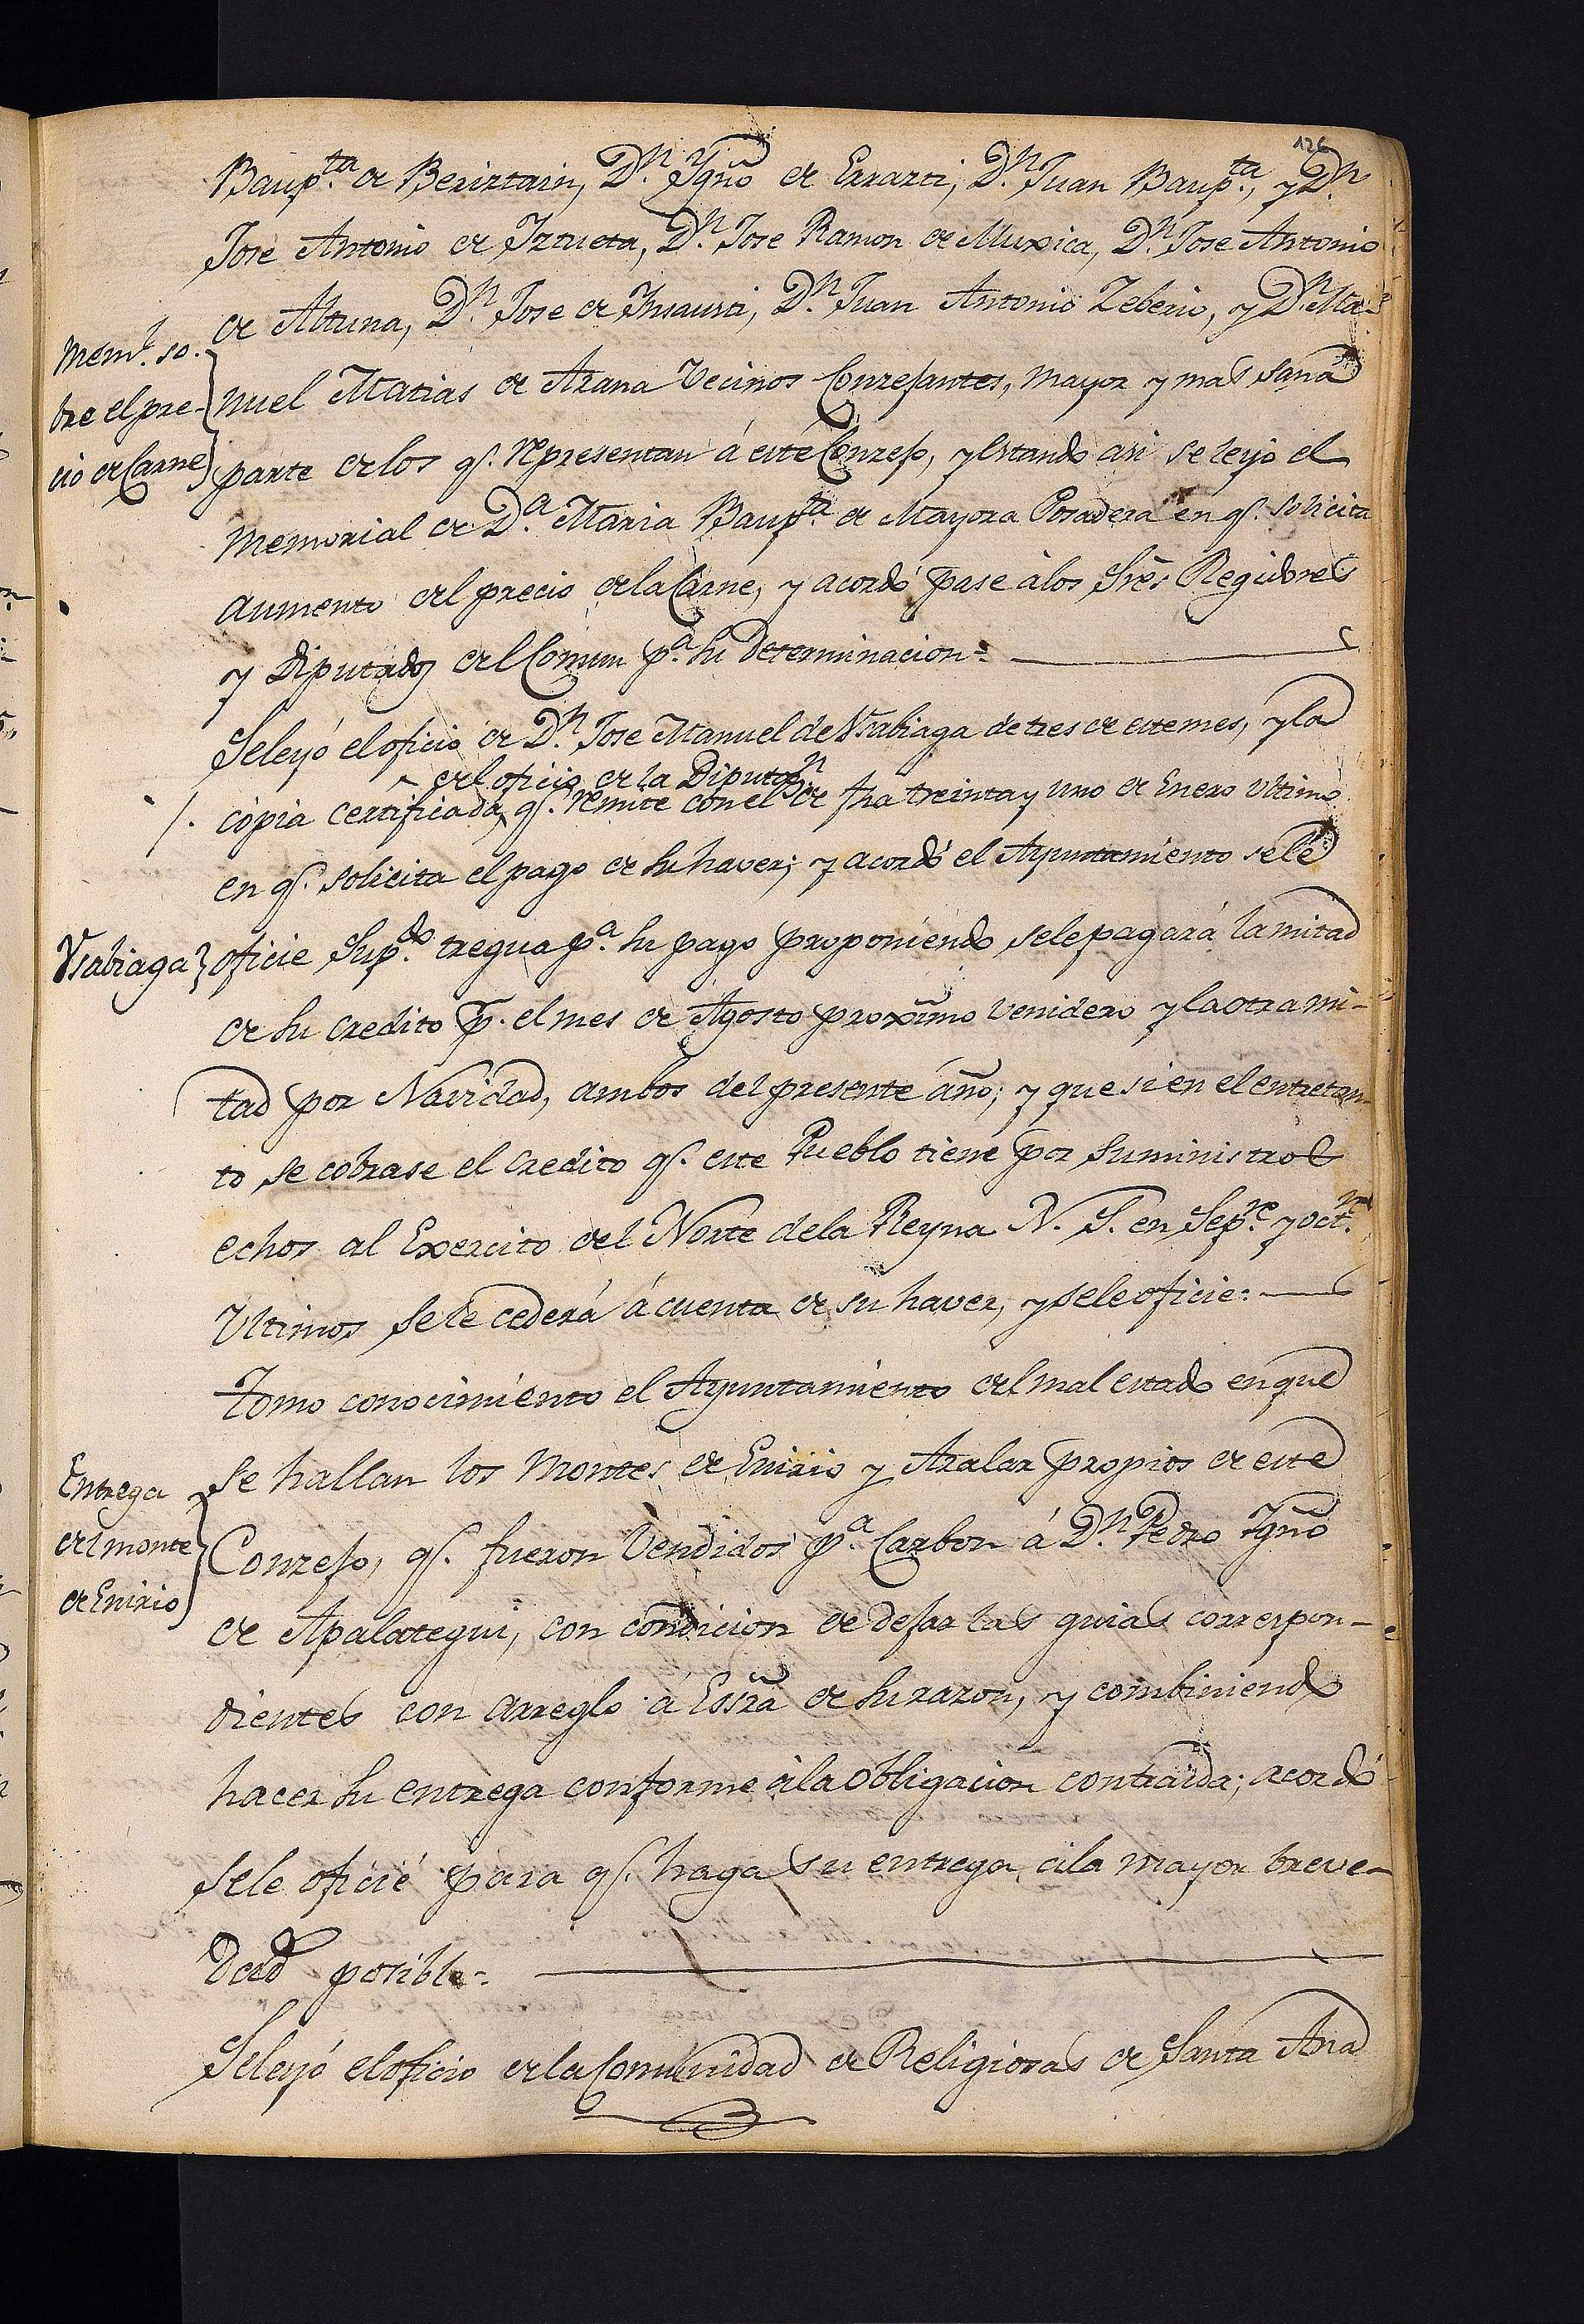 126
Baup.ta de Beriztain, D.n Ygnõ de Errazti, D.n Juan Baup.ta, y D.n
José Antonio de Iztueta, D.n Jose Ramon de Muxica, D.n Jose Antonio
de Altuna, D.n Jose de Insausti, D.n Juan Antonio Zeberio, y D.n Ma-
Mem.l so-
bre el pre-
cio de Carne
nuel Matias de Arana Vecinos Conzejantes, mayor y mas sana
parte de los q.e representan á este Conzejo, y estando asi se leyo el
Memorial de D.a Maria Baup.ta de Mayora Posadera en q.e solicita
aumento del precio de la Carne, y acordó pase á los Srẽs Regidores
y Diputados del Comun p.a su determinacion=
Se leyó el oficio de D.n Jose Manuel de Vsabiaga de tres de este mes, y la
del oficio de la Diputon
copia certificada q.e remite con el de fha treinta y uno de Enero ultimo
en q.e solicita el pago de su haver; y acordó el Ayuntamiento se le
Vsabiaga
oficie Sup.do tregua p.a su pago proponiendo se le pagará la mitad
de su credito p.r el mes de Agosto proximo venidero y la otra mi-
tad por Navidad, ambos del presente año; y que si en el entretan-
to se cobrase el credito q.e este Pueblo tiene por suministros
echos al Exercito del Norte de la Reyna N. S. en Sep.re y oct.re
Ultimos se le cederá á cuenta de su haver, y se le oficie=
Tomo conocimiento el Ayuntamiento del mal estado en que
Entrega
del monte
de Enirio
se hallan los Montes de Enirio y Aralar propios de este
Conzejo, q.e fueron Vendidos p.a Carbon á D.n Pedro Ygnõ
de Apalategui, con condicion de dejar las guias correspon-
dientes con arreglo á Essrã de su razon, y combiniendo
hacer su entrega conforme á la obligacion contraida; acordó
se le oficie para q.e haga su entrega á la mayor breve-
dad posible=
Se leyó el oficio de la Comunidad de Religiosas de Santa Ana